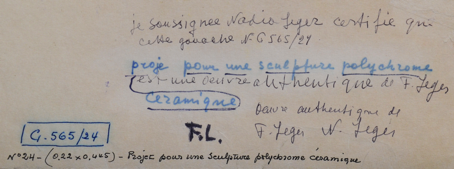 je soussignée Nadia Leger certifie que
cette gouache N G 565/24
proje pour une sculpture polychrome
est une oeuvre authentique de F. Leger
céramique
Oeuvre authentique de
F. Leger N. Leger
G. 565/24
F.L.
N° 24 - (0,22 x 0,445) - Projet pour une sculpture polychrome céramique